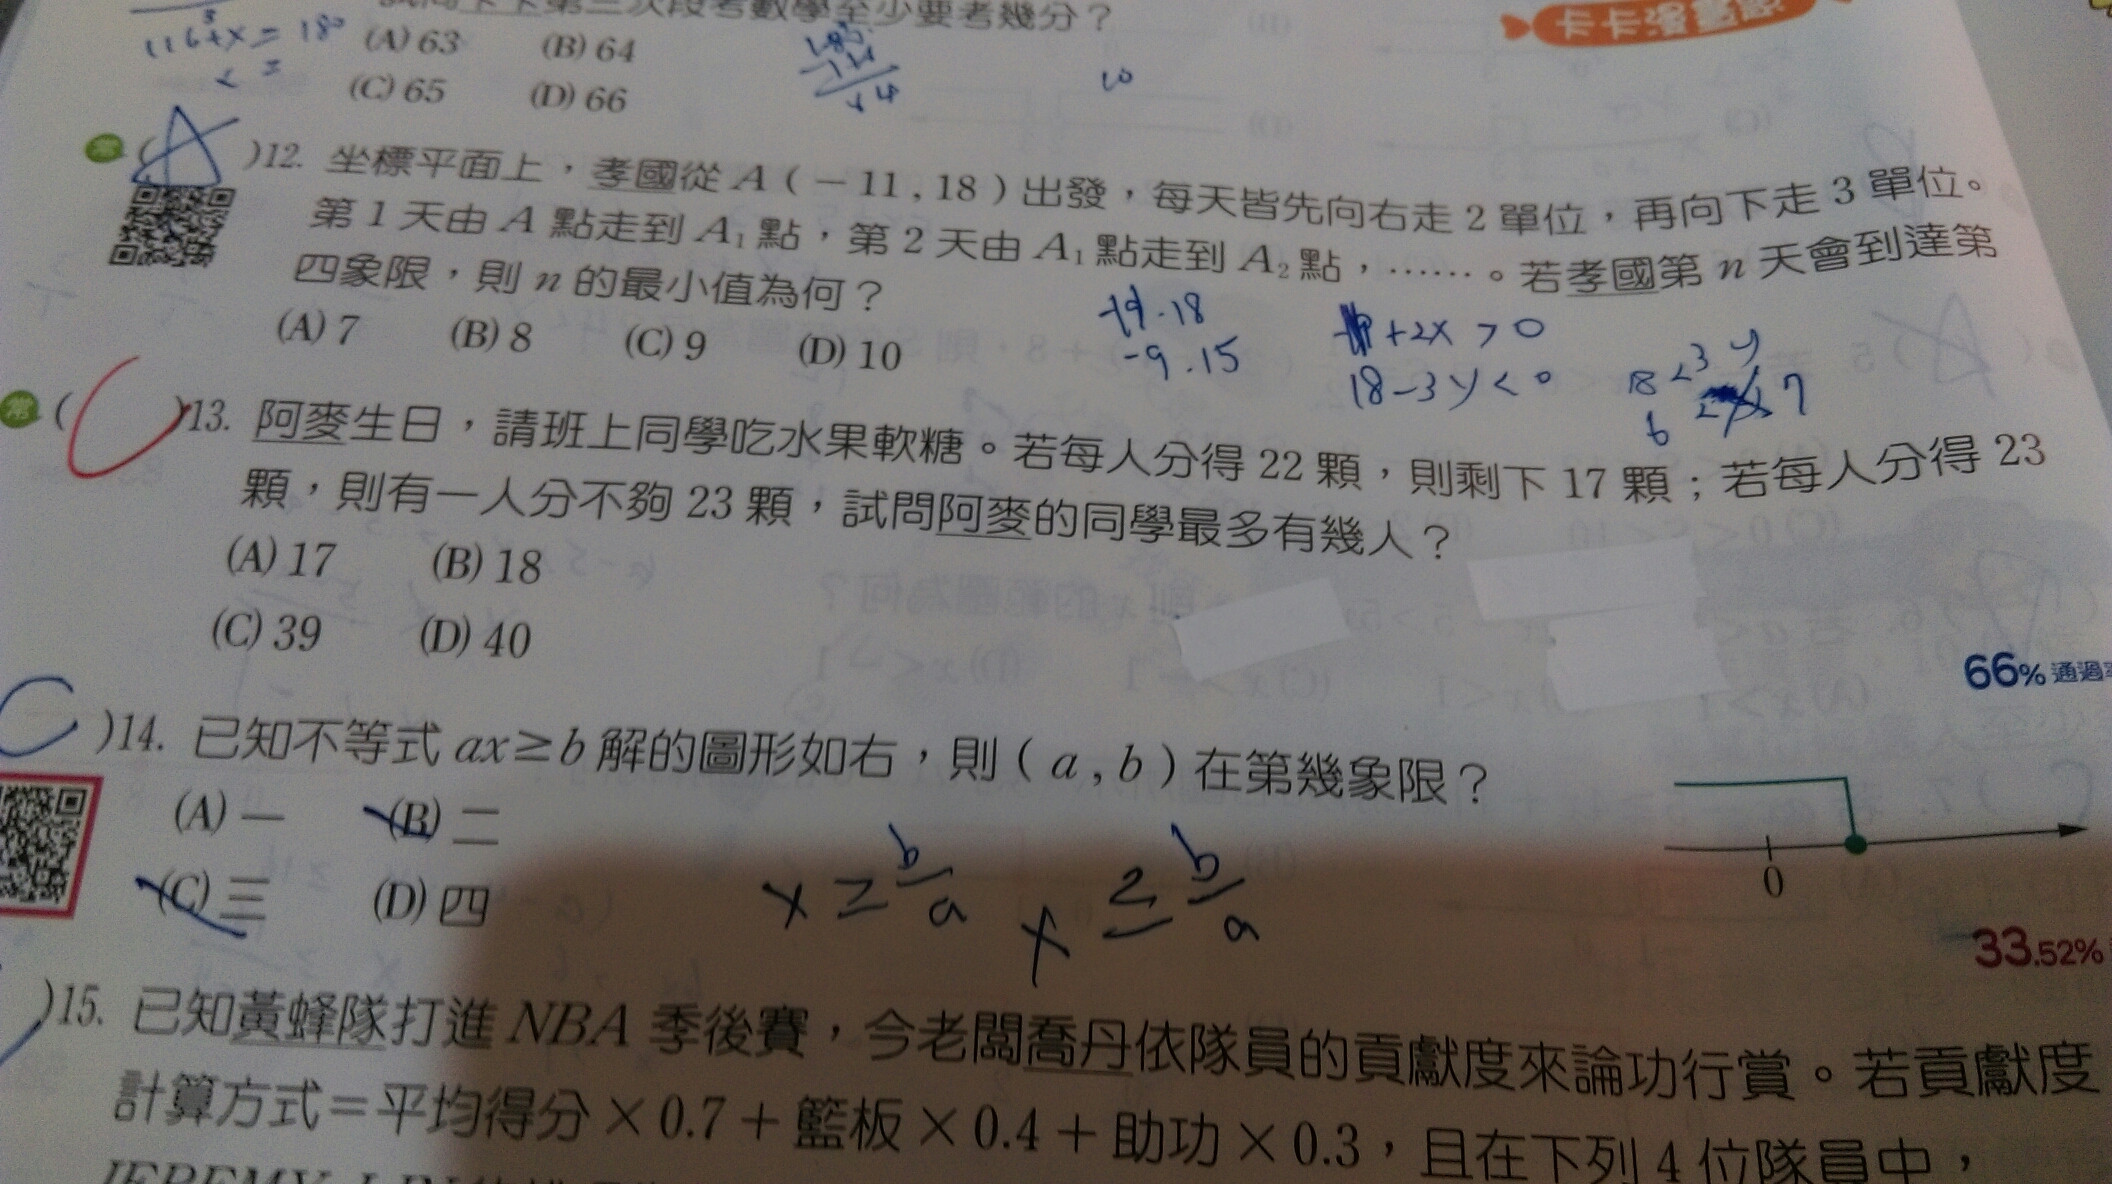 第三次段考數學至少要考幾分？
卡卡漫畫
116+x=180 (A) 63 (B) 64
(C) 65 (D) 66
常 ( A )12. 坐標平面上，孝國從 A（－11 , 18）出發，每天皆先向右走 2 單位，再向下走 3 單位。
第 1 天由 A 點走到 A₁ 點，第 2 天由 A₁ 點走到 A₂ 點，……。若孝國第 n 天會到達第
四象限，則 n 的最小值為何？
(A) 7 (B) 8 (C) 9 (D) 10
-9.15
+2x > 0
18-3y<0
常 ( C )13. 阿麥生日，請班上同學吃水果軟糖。若每人分得 22 顆，則剩下 17 顆；若每人分得 23
顆，則有一人分不夠 23 顆，試問阿麥的同學最多有幾人？
(A) 17 (B) 18
(C) 39 (D) 40
66% 通過
C )14. 已知不等式 ax≥b 解的圖形如右，則（a , b）在第幾象限？
(A) 一 (B) 二
(C) 三 (D) 四
0
x ≥ b/a x ≥ b/a
33.52%
)15. 已知黃蜂隊打進 NBA 季後賽，今老闆喬丹依隊員的貢獻度來論功行賞。若貢獻度
計算方式＝平均得分×0.7＋籃板×0.4＋助功×0.3，且在下列 4 位隊員中，
JEREMY LIN